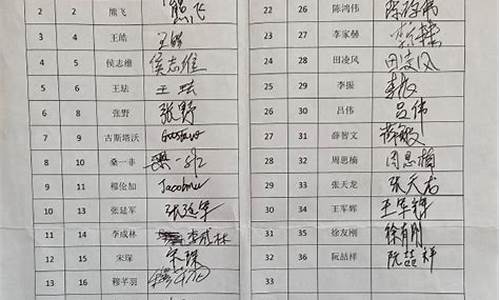 2 2 熊飞 熊飞
3 4 王皓 王皓
4 5 侯志维 侯志维
5 6 王珐 王珐
6 8 张野 张野
7 9 古斯塔沃 Gustavo
8 10 桑一非 桑一非
9 11 穆伦加
10 13 张延军 张延军
11 14 李成林 李成林
12 15 宋琛 宋琛
13 16 穆羊羽
22 26 陈鸿伟 陈鸿伟
23 27 李家赫
24 28 田凌风 田凌风
25 29 李振 李振
26 30 吕伟 吕伟
27 31 薛智文
28 32 周思楠 周思楠
29 33 张天龙 张天龙
30 34 王军辉 王军辉
31 35 徐友刚 徐有刚
32 36 阮喆祥 阮喆祥
33